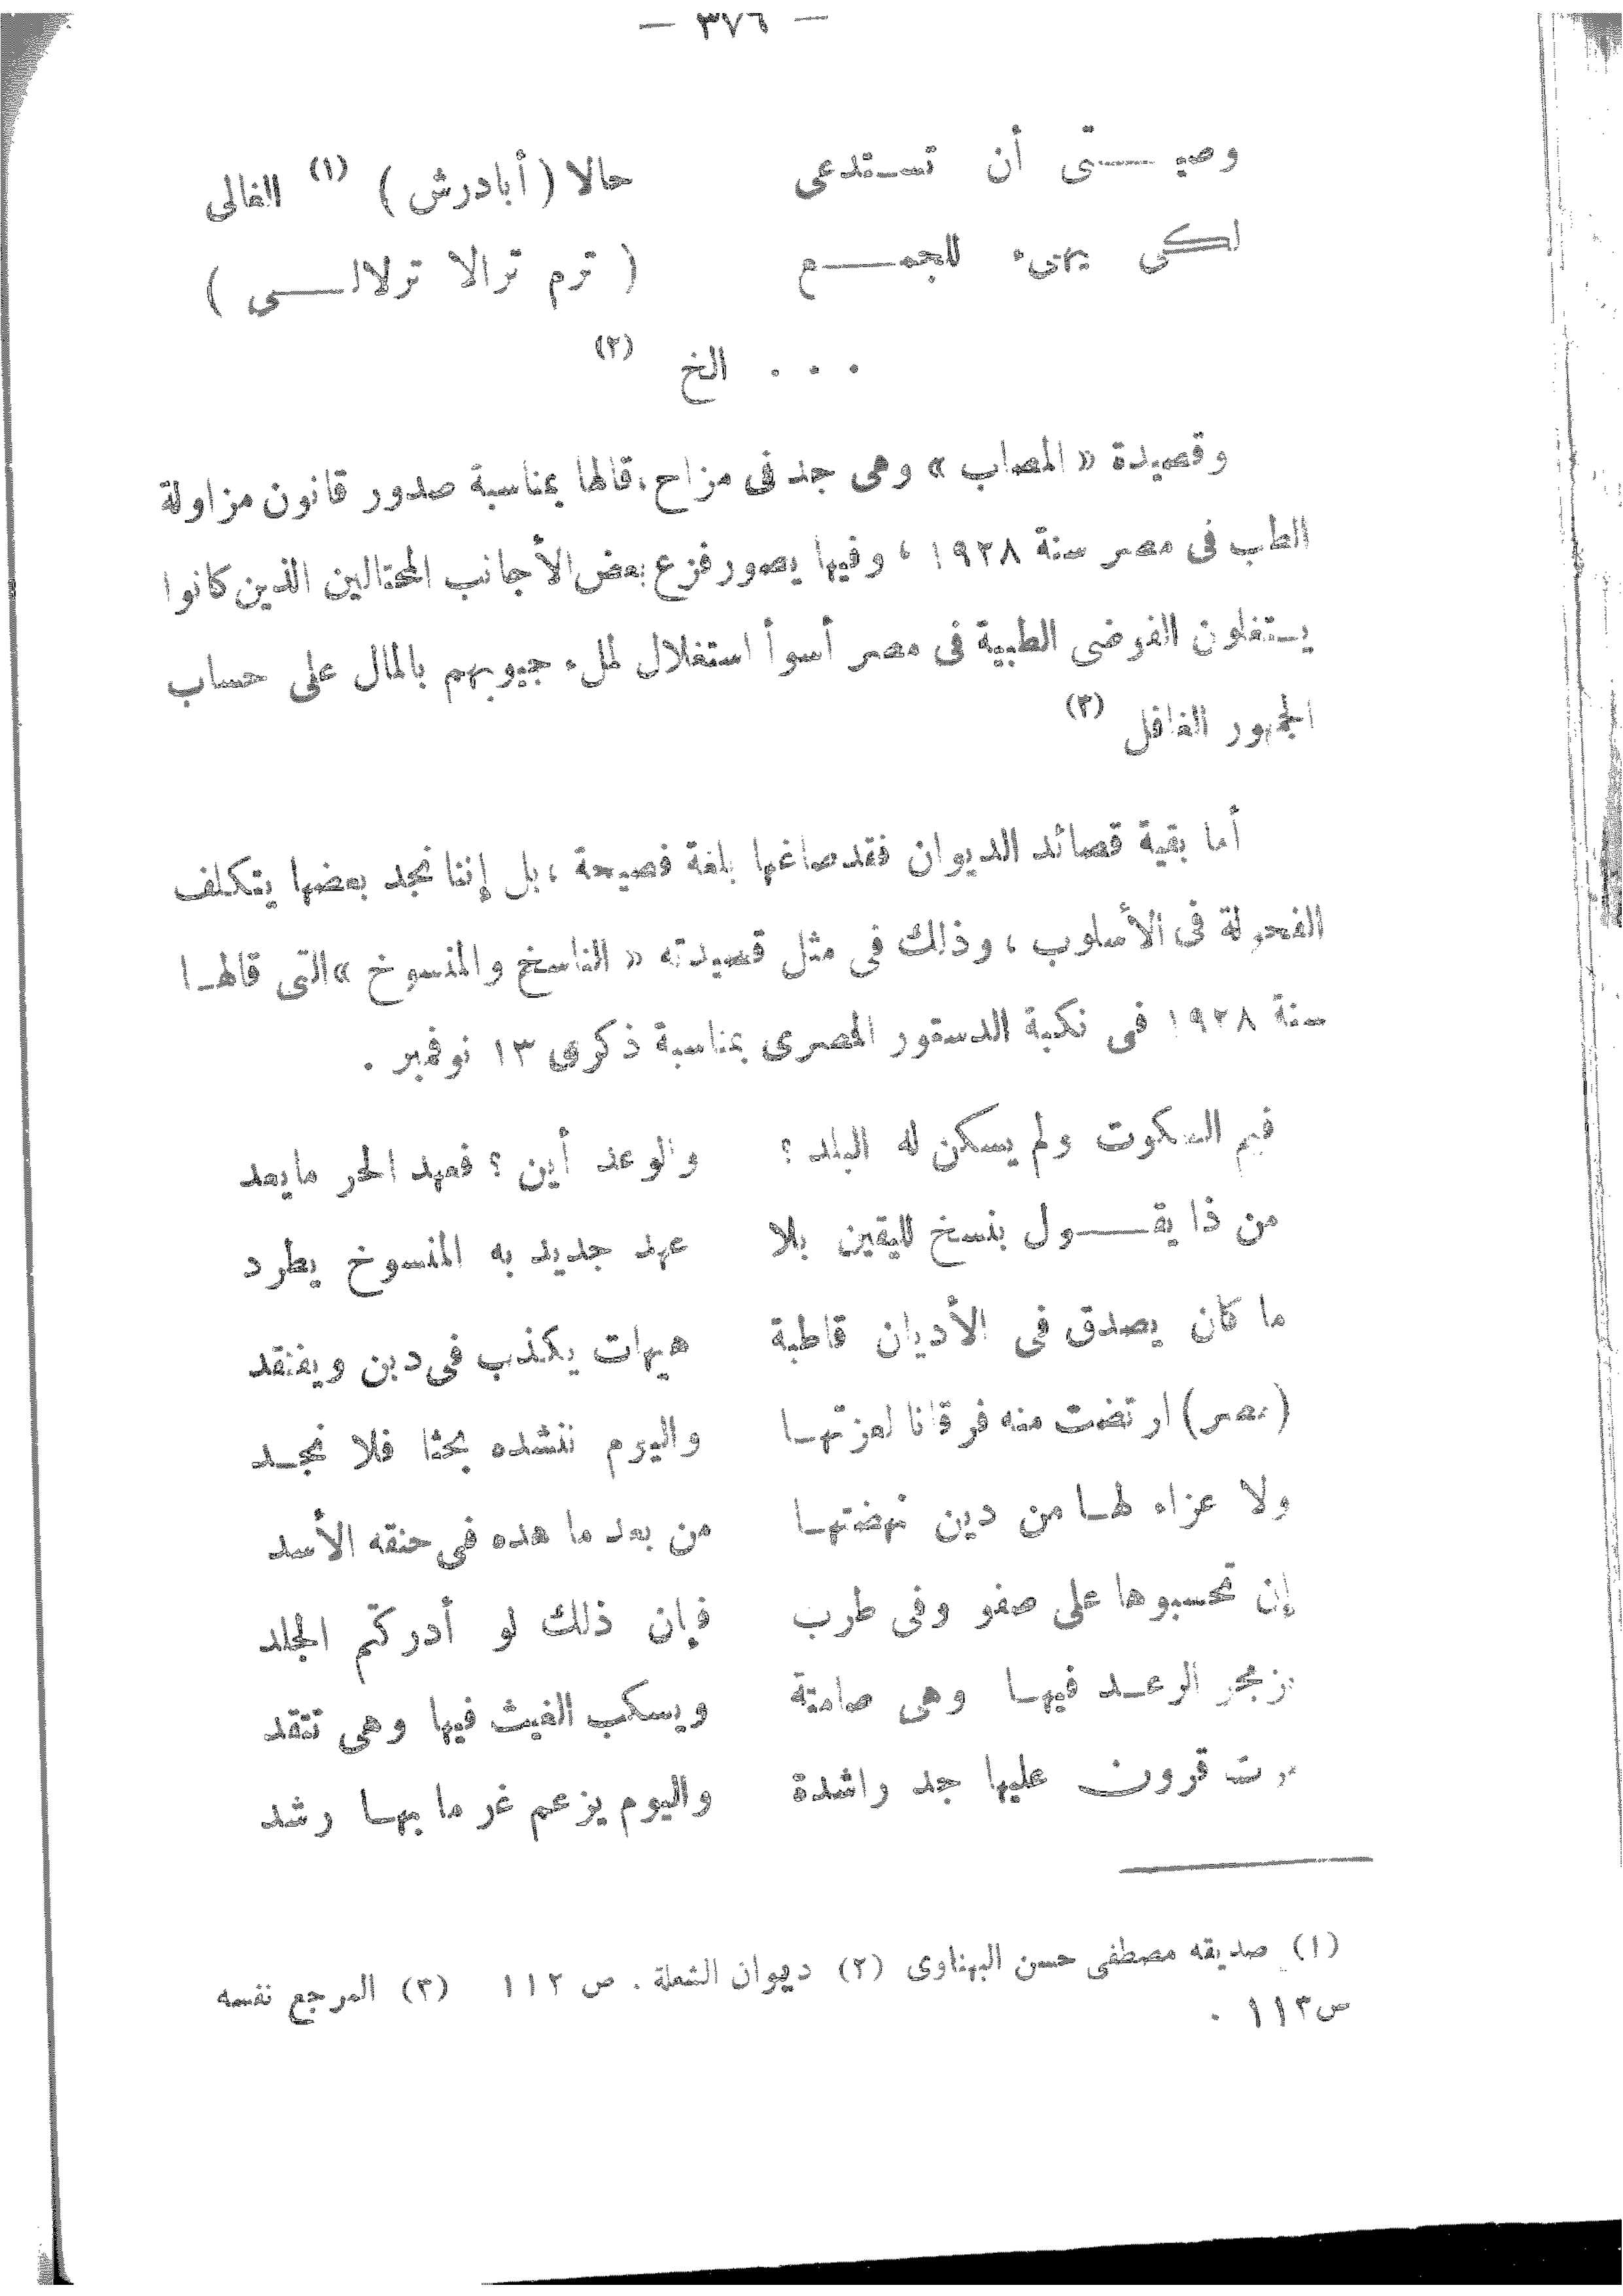 — ٣٧٦ —
وصيـــتى أن تستدعى حالا (أبادرش) (١) الغالى
لكى يهنىء للجمـــع ( ترم ترالا ترلالـــى )
. . . الخ (٢)
وقصيدة « المصاب » وهى جد فى مزاح ، قالها بمناسبة صدور قانون مزاولة
الطب فى مصر سنة ١٩٢٨ ، وفيها يصور فزع بعض الأجانب المحتالين الذين كانوا
يستغلون الفوضى الطبية فى مصر أسوأ استغلال لملء جيوبهم بالمال على حساب
الجمهور الغافل (٣)
أما بقية قصائد الديوان فقد صاغها بلغة فصيحة ، بل إننا نجد بعضها يتكلف
الفحولة فى الأسلوب ، وذلك فى مثل قصيدته « الناسخ والمنسوخ » التى قالهـا
سنة ١٩٢٨ فى نكبة الدستور المصرى بمناسبة ذكرى ١٣ نوفمبر .
فيم السكوت ولم يسكن له البلد ؟ والوعد أين ؟ فعهد الحر مايعد
من ذا يقـــول بنسخ لليقين بلا عهد جديد به المنسوخ يطرد
ما كان يصدق فى الأديان قاطبة هيهات يكذب فى دين ويفتقد
(مصر) ارتضت منه فرقانا لعزتهـا واليوم ننشده بحثا فلا نجـد
ولا عزاء لهـا من دين نهضتهـا من بعد ما هده فى حنقه الأسد
إن تحسبوها على صفو وفى طرب فإن ذلك لو أدركتم الجلد
يزمجر الرعـد فيهـا وهى صامتة ويسكب الغيث فيها وهى تتقد
مرت قرون عليها جد راشدة واليوم يزعم غر ما بهـا رشد
(١) صديقه مصطفى حسن البهناوى (٢) ديوان الشعلة . ص ١١٢ (٣) المرجع نفسه
ص١١٣ .